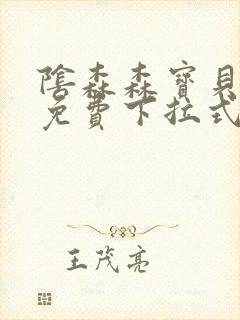 陰森森寶貝
免費下拉式
王茂亮